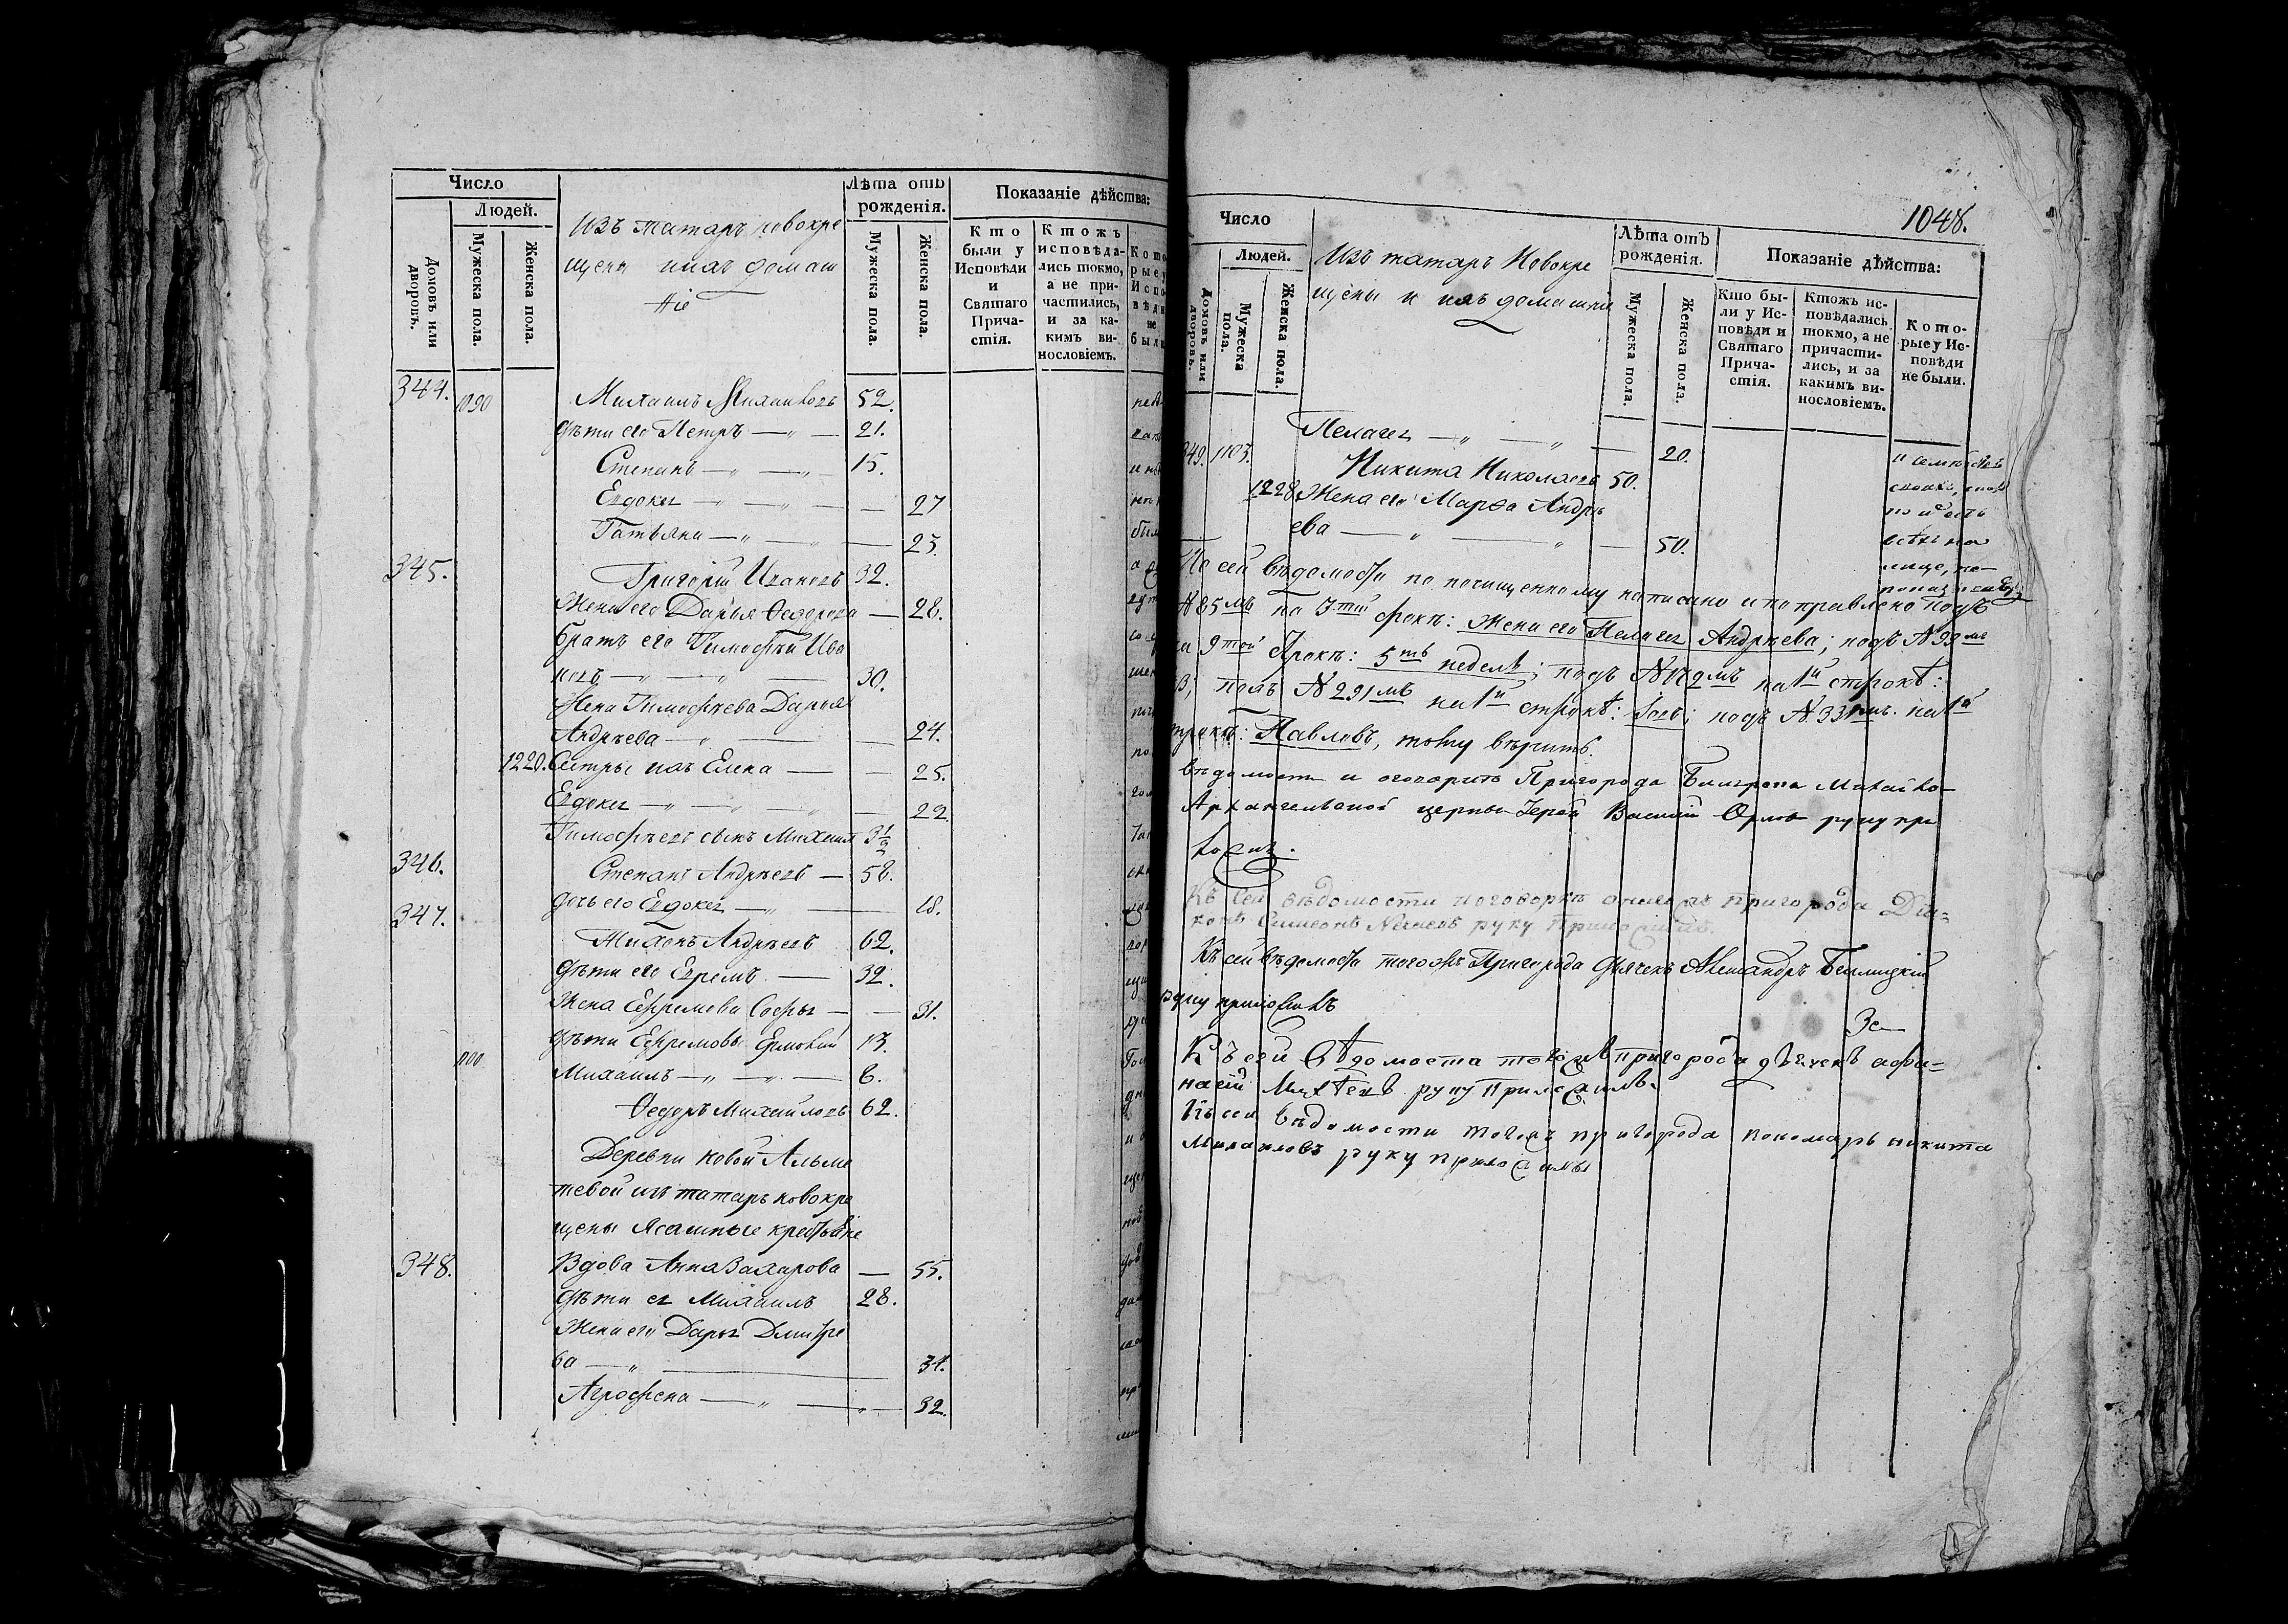 Число
Лѣта отъ рожденія.
Показаніе дѣйства:
Людей.
Домовъ или дворовъ.
Мужеска пола.
Женска пола.
Изъ татаръ новокре
щены и ихъ домаш
ніе
Мужеска пола.
Женска пола.
Кто были у Исповѣди и Святаго Причастія.
Ктожъ исповѣдались токмо, а не причастились, и за какимъ винословіемъ.
344. 1090 Михаилъ Михаиловъ 52.
дѣти его Петръ —„— 21.
Степанъ —„— —„— 15.
Евдокея —„— —„— — 27
Татьяна —„— —„— — 23.
345. Григорій Ивановъ 32.
Жена его Дарья Ѳеодорова — 28.
братъ его Тимофѣй Ива
новъ —„— —„— — 30.
Жена Тимофѣева Дарья
Андрѣева —„— — — 24.
1220. Сестры ихъ Елена — — 25.
Евдокея —„— —„— —„— — 22.
Тимофѣевъ сынъ Михаил 3½
346. Степанъ Андрѣевъ — 58.
дочь его Евдокея —„— — 18.
347. Тихонъ Андрѣевъ 62.
дѣти его Ефремъ — 32.
Жена Ефремова Софья — — 31.
1100 дѣти Ефремовы Ермолай 13.
Михаилъ —„— —„— — 6.
Ѳедоръ Михайловъ 62.
Деревни Новой Альме
тевой изъ татаръ новокре
щены Ясашные крестьяне
348. Вдова Анна Захарова — 55.
дѣти ея Михаилъ 28.
Жена его Дарья Дмитре
ва —„— — 34.
Агрофена —„— —„— 32.
1048.
Число
Лѣта отъ рожденія.
Показаніе дѣйства:
Людей.
Домовъ или дворовъ.
Мужеска пола.
Женска пола.
Изъ татаръ Новокре
щены и ихъ домашніе
Мужеска пола.
Женска пола.
Кто были у Исповѣди и Святаго Причастія.
Ктожъ исповѣдались токмо, а не причастились, и за какимъ винословіемъ.
Которые у Исповѣди не были.
Пелагея —„— —„— — 20.
349. 1103. Никита Николаевъ 50.
1228 Жена его Марѳа Андрѣ
ева —„— —„— — 50.
По сей вѣдомости по почищенному написано и поправлено подъ
№ 85мъ на 3той строкѣ: жена его Пелагея Андрѣева; подъ № 99мъ
на 9той строкѣ: 5ть недель; подъ № 172мъ на 1й строкѣ:
подъ № 291мъ на 1й строкѣ: подъ № 331мъ. на 1й
строкѣ: Павловъ, тому вѣрить.
вѣдомости и оговорить Пригорода Билярска Михайло-
Архангельской церкви Іерей Василій Орлов руку при
ложилъ.
Къ сей вѣдомости и оговоркѣ онаго жъ пригорода Діа=
конъ Симеонъ руку приложилъ.
Къ сей вѣдомости тогожъ Пригорода дьячекъ Александръ
руку приложилъ
Къ сей вѣдомости тогожъ пригорода дьячекъ афа=
насій руку приложилъ.
Къ сей вѣдомости тогожъ пригорода пономарь никита
Михаиловъ руку приложилъ